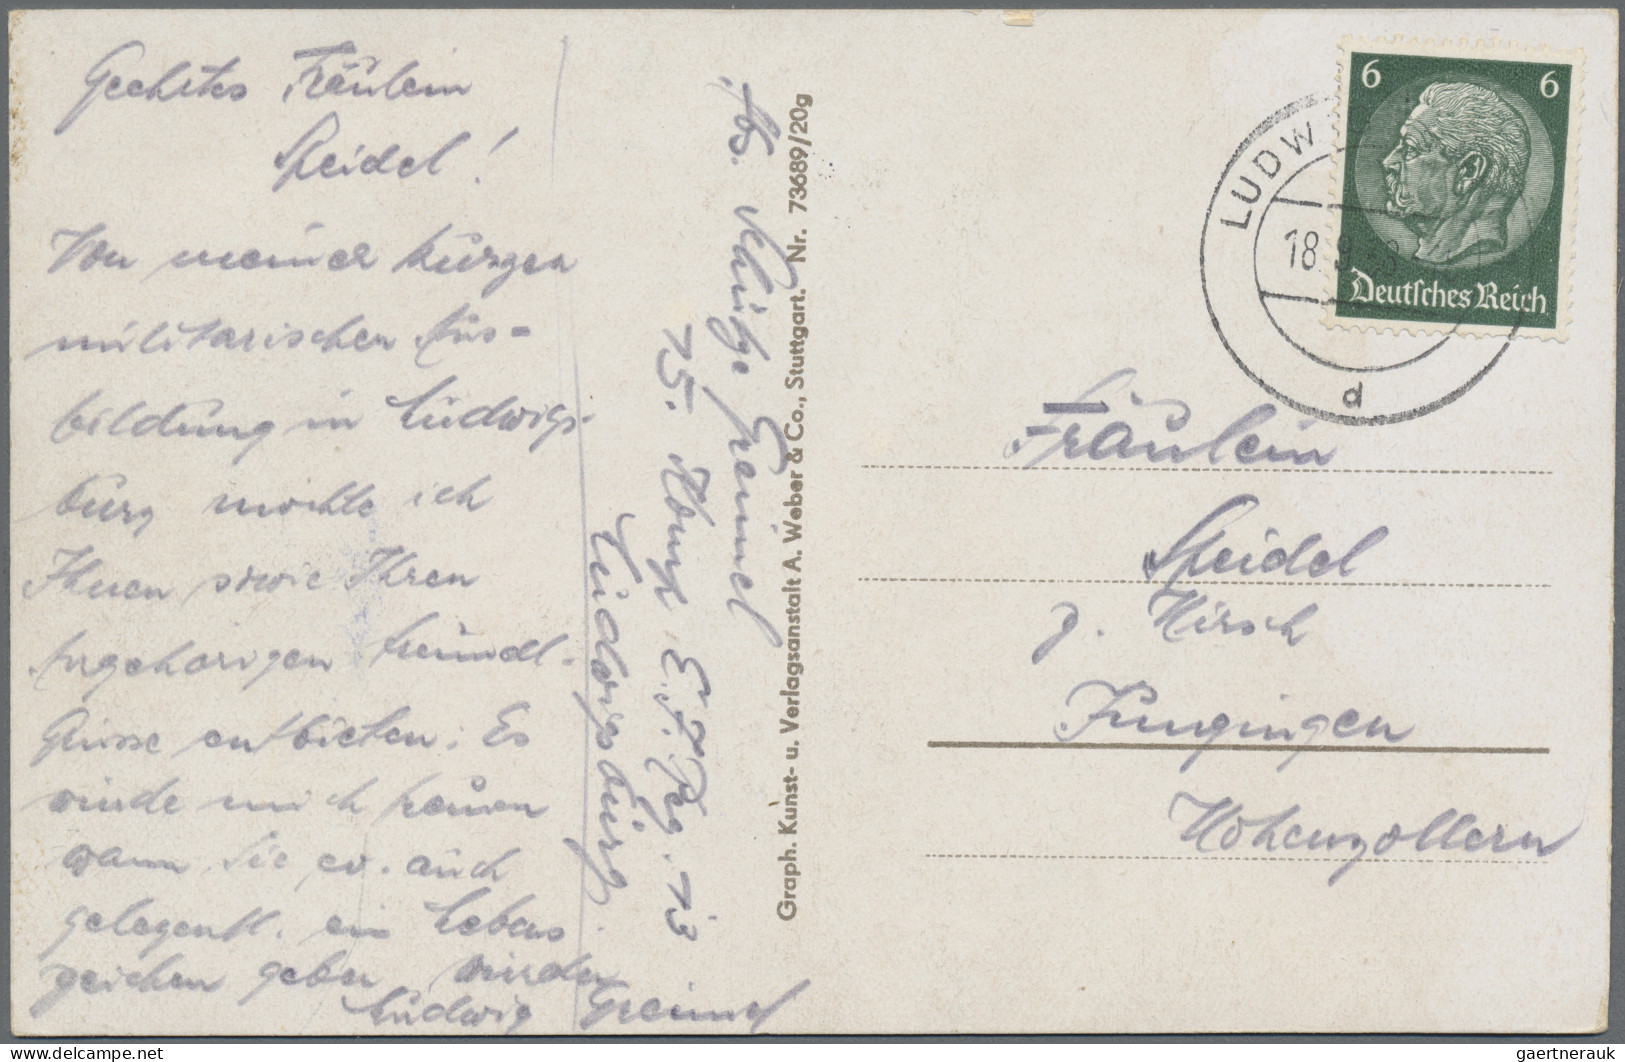 Geehrtes Fräulein
Speidel!
Von meiner kurzen
militärischen Aus=
bildung in Ludwigs-
burg möchte ich
Ihnen sowie Ihren
Angehörigen freundl.
Grüsse entbieten. Es
würde mich freuen
wann Sie ev. auch
gelegentl. ein Lebens
zeichen geben würden
Ludwig Greimel
Abs. Schütze Greimel
15. Komp. E. J. Reg. 13
Ludwigsburg
Graph. Kunst- u. Verlagsanstalt A. Weber & Co., Stuttgart. Nr. 73689/20g
6 6
Deutsches Reich
LUDW
18 9
d
Fräulein
Speidel
z. Hirsch
Jungingen
Hohenzollern
delcampe.net
gaertnerauk